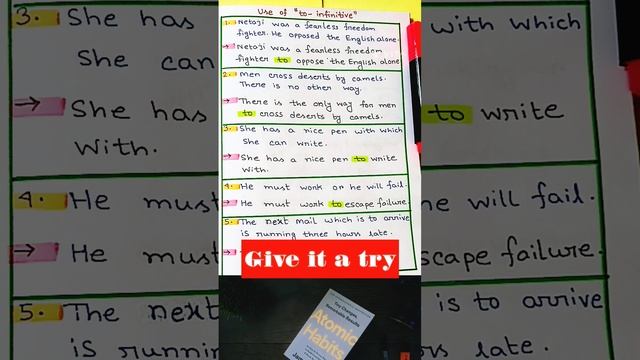 Use of "to-infinitive"
1. Netaji was a fearless freedom
fighter. He opposed the English alone.
→ Netaji was a fearless freedom
fighter to oppose the English alone
2. Men cross deserts by camels.
There is no other way.
→ There is the only way for men
to cross deserts by camels.
3. She has a nice pen with which
She can write.
→ She has a nice pen to write
with.
4. He must work or he will fail.
→ He must work to escape failure.
5. The next mail which is to arrive
is running three hours late.
→
Give it a try
Tiny Changes,
Remarkable Results
Atomic
Habits
3. She has
with which
She can
→ She has
to write
with.
4. He must
he will fail.
→ He must
scape failure.
5. The next
is to arrive
is runnin
late.